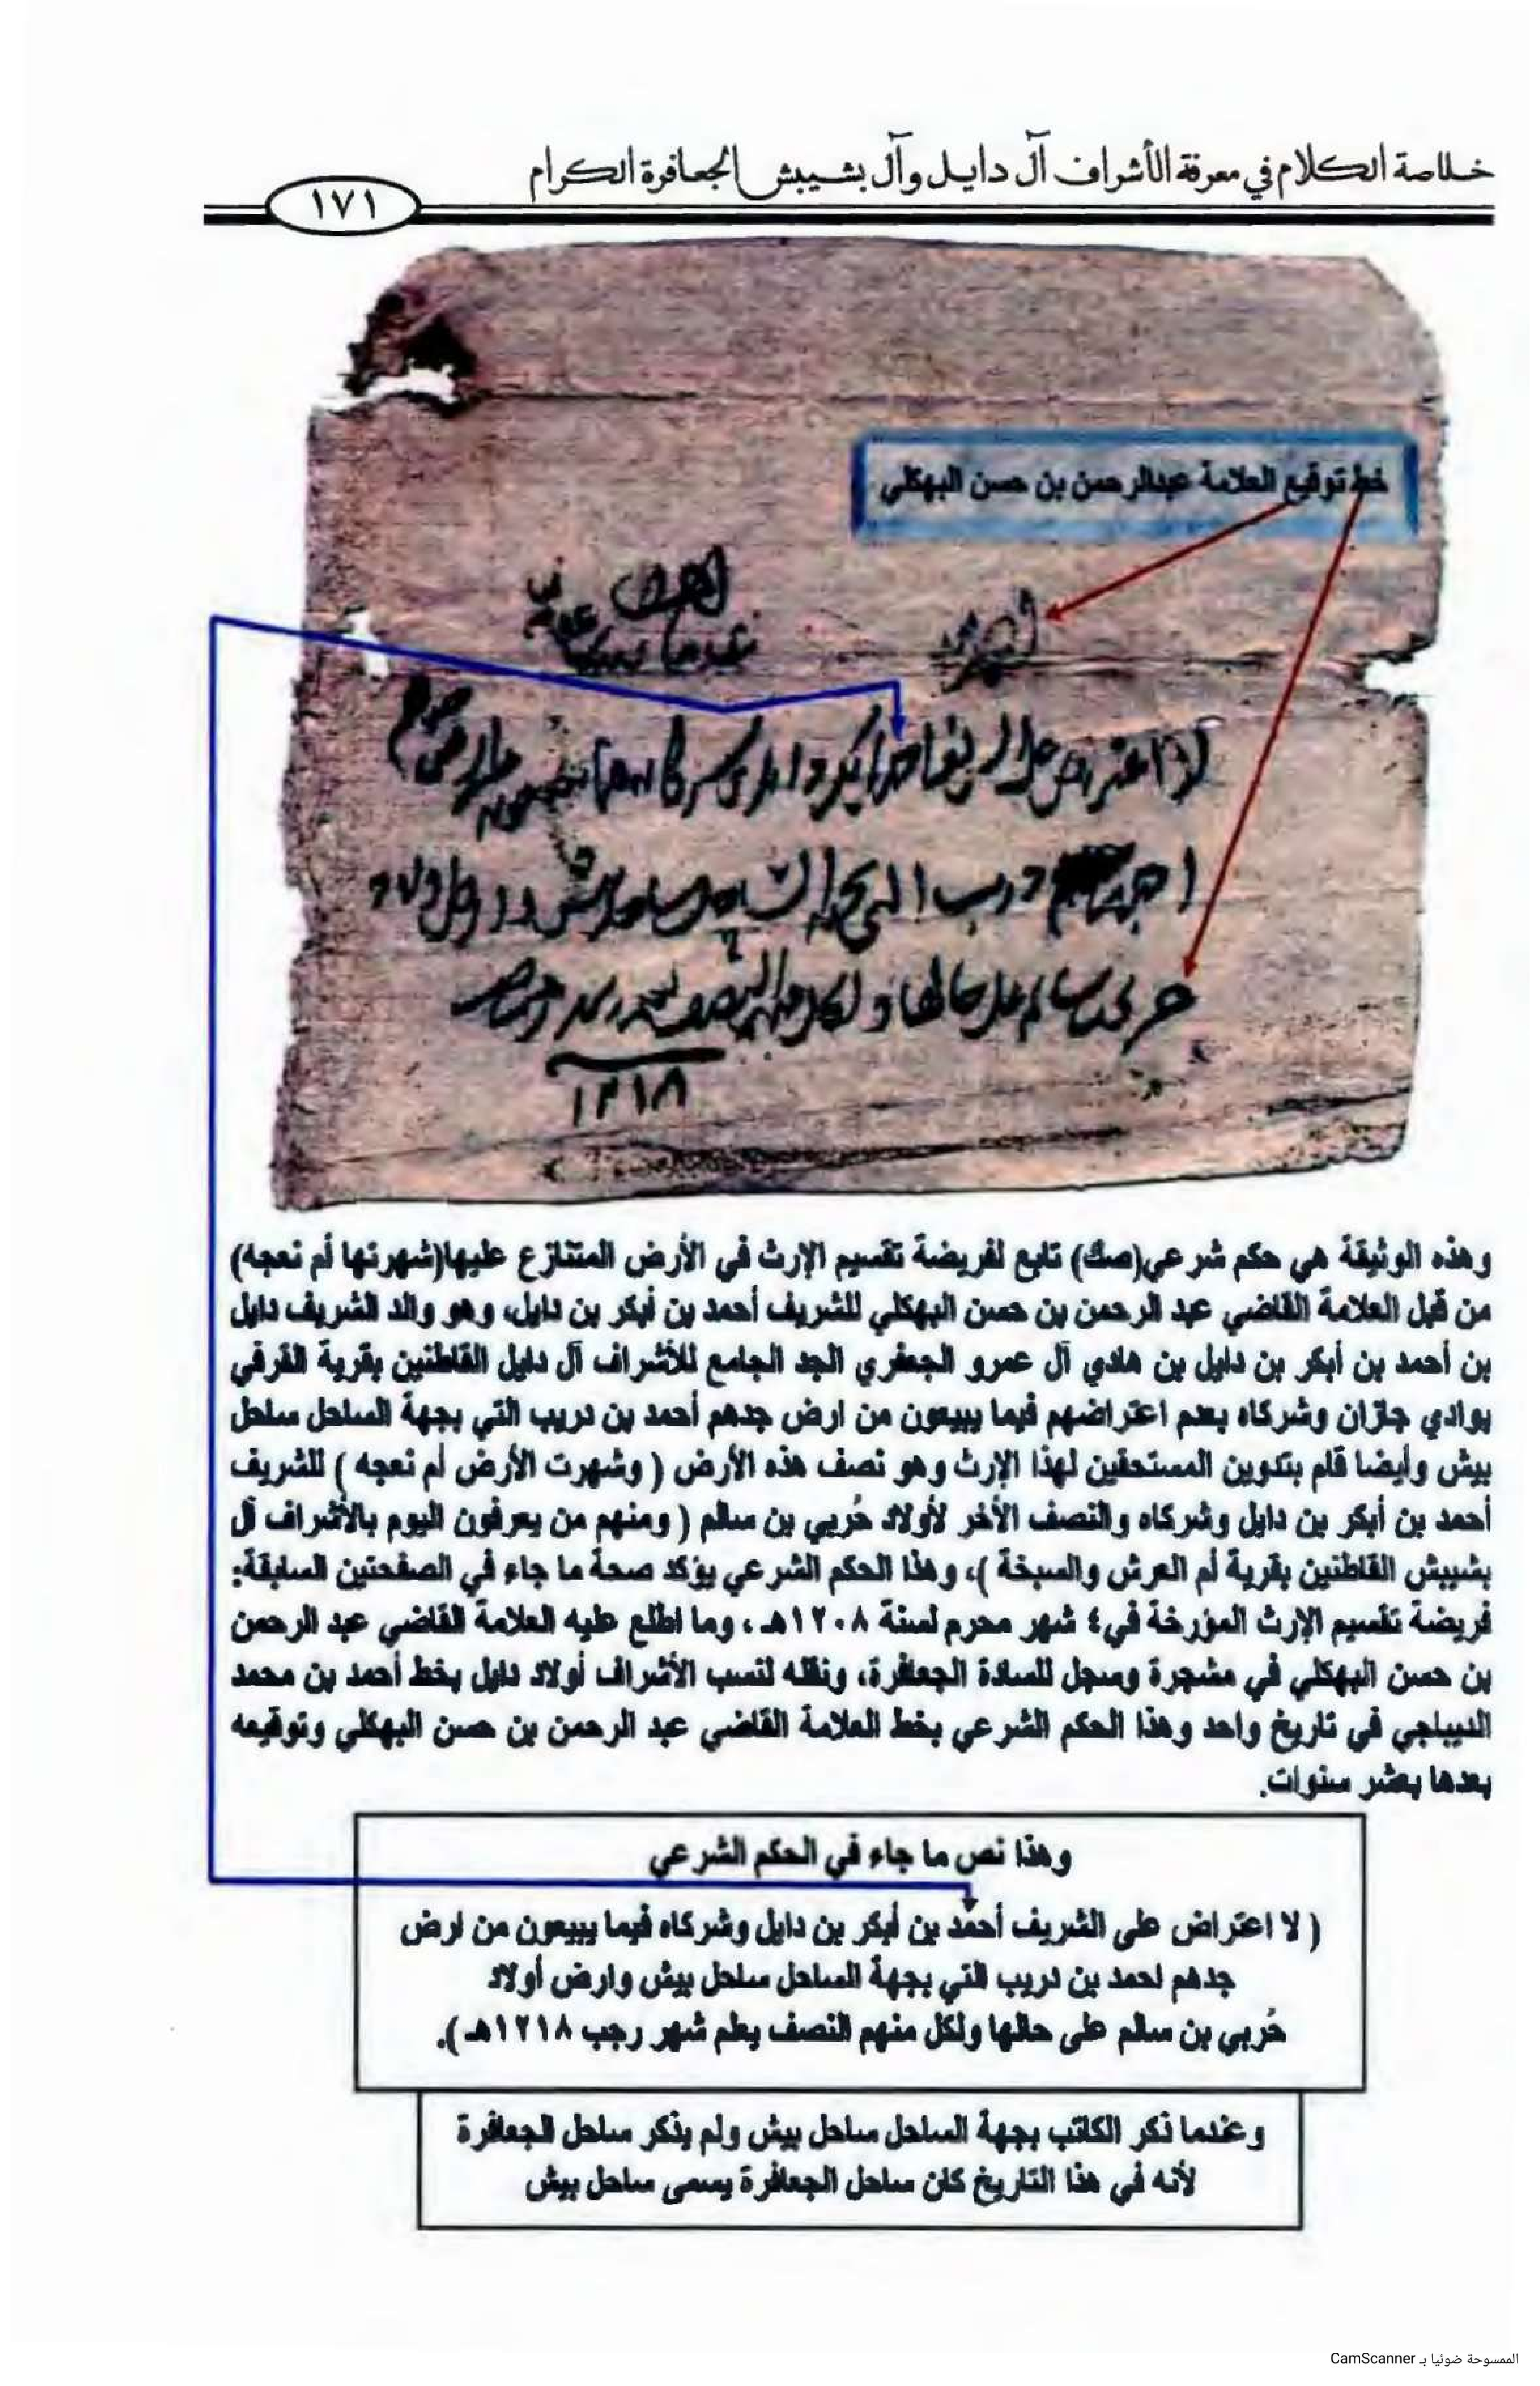 خلاصة الكلام في معرفة الأشراف آل دايل وآل بشيبش الجعافرة الكرام
١٧١
خط توقيع العلامة عبدالرحمن بن حسن البهكلي
لا اعتراض على الشريف احمد أبكر دايل وشركاه فيما يبيعون من ارض
جدهم دريب التي بجهة الساحل ساحل بيش وارض اولاد
حربي بن سالم على حالها ولكل منهم النصف
١٢١٨
وهذه الوثيقة هي حكم شرعي(صك) تابع لفريضة تقسيم الإرث في الأرض المتنازع عليها(شهرتها أم نعجه)
من قبل العلامة القاضي عبد الرحمن بن حسن البهكلي للشريف أحمد بن أبكر بن دايل، وهو والد الشريف دايل
بن أحمد بن أبكر بن دايل بن هادي آل عمرو الجعفري الجد الجامع للأشراف آل دايل القاطنين بقرية القرفي
بوادي جازان وشركاه بعدم اعتراضهم فيما يبيعون من ارض جدهم أحمد بن دريب التي بجهة الساحل ساحل
بيش وأيضا قام بتدوين المستحقين لهذا الإرث وهو نصف هذه الأرض ( وشهرت الأرض أم نعجه ) للشريف
أحمد بن أبكر بن دايل وشركاه والنصف الأخر لأولاد حُربي بن سالم ( ومنهم من يعرفون اليوم بالأشراف آل
بشيبش القاطنين بقرية أم العرش والسبخة )، وهذا الحكم الشرعي يؤكد صحة ما جاء في الصفحتين السابقة:
فريضة تقسيم الإرث المؤرخة في٤ شهر محرم لسنة ١٢٠٨هـ ، وما اطلع عليه العلامة القاضي عبد الرحمن
بن حسن البهكلي في مشجرة وسجل للسادة الجعافرة، ونقله لنسب الأشراف أولاد دايل بخط أحمد بن محمد
الديباجي في تاريخ واحد وهذا الحكم الشرعي بخط العلامة القاضي عبد الرحمن بن حسن البهكلي وتوقيعه
بعدها بعشر سنوات.
وهذا نص ما جاء في الحكم الشرعي
( لا اعتراض على الشريف أحمد بن أبكر بن دايل وشركاه فيما يبيعون من ارض
جدهم احمد بن دريب التي بجهة الساحل ساحل بيش وارض أولاد
حُربي بن سالم على حالها ولكل منهم النصف يعلم شهر رجب ١٢١٨هـ ).
وعندما ذكر الكاتب بجهة الساحل ساحل بيش ولم يذكر ساحل الجعافرة
لأنه في هذا التاريخ كان ساحل الجعافرة يسمى ساحل بيش
الممسوحة ضوئيا بـ CamScanner